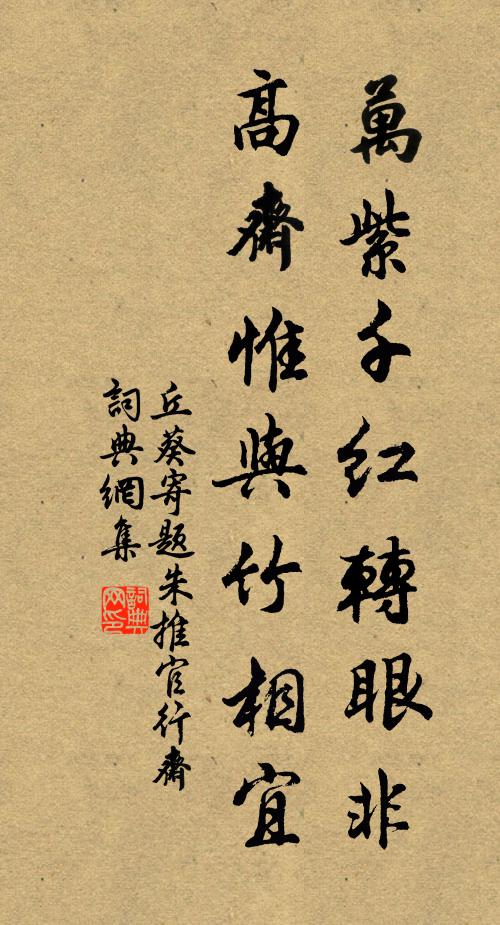 萬紫千紅轉眼非
高齋惟與竹相宜
丘葵寄題朱推官行齋
詞典網集
詞典网印